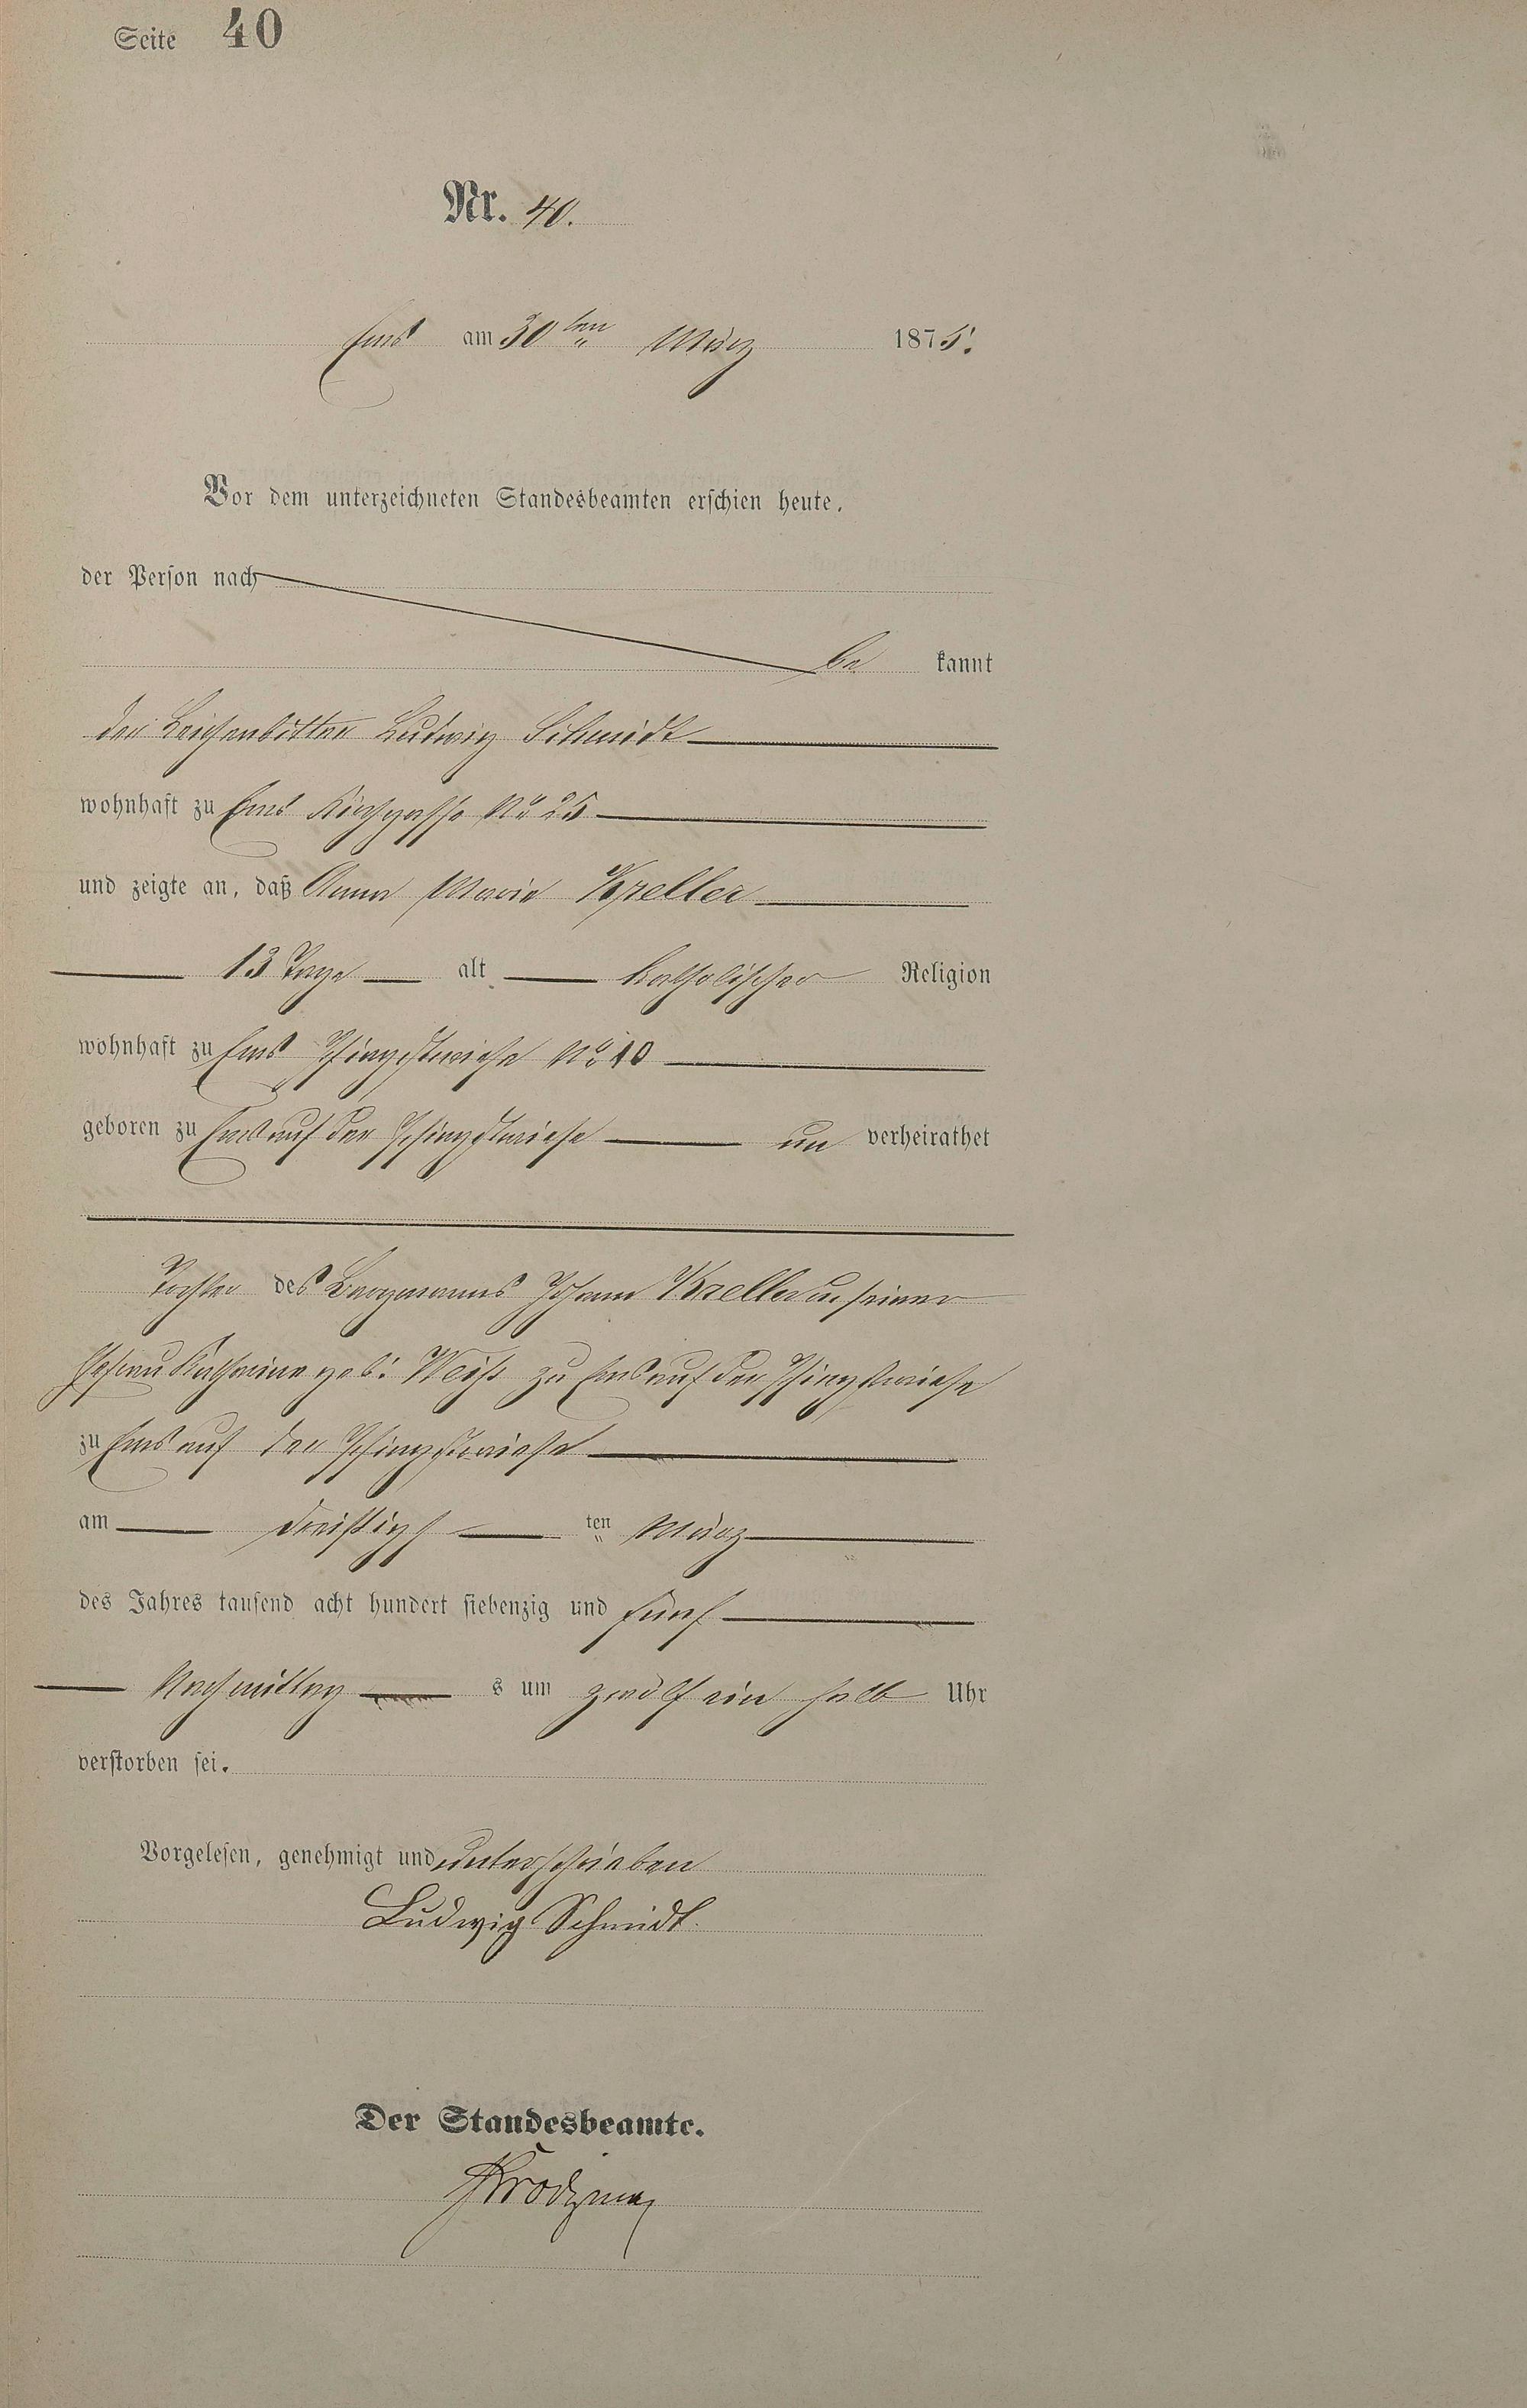 Seite 40
Nr. 40.
Ems am 30ten März 1875.
Vor dem unterzeichneten Standesbeamten erschien heute,
der Person nach
be kannt
der Leichenbitter Ludwig Schmidt
wohnhaft zu Ems Kirchgasse No 25
und zeigte an, daß Anna Maria Kreller
13 Tage alt katholischer Religion
wohnhaft zu Ems Pfingstwiese No 10
geboren zu Ems auf der Pfingstwiese un verheirathet
Tochter des Bergmanns Johann Kreller u seiner
Ehefrau Katharina geb: Weiß zu Ems auf der Pfingstwiese
zu Ems auf der Pfingstwiese
am dreißigs ten März
des Jahres tausend acht hundert siebenzig und fünf
Nachmittag s um zwölf ein halb Uhr
verstorben sei.
Vorgelesen, genehmigt und unterschrieben
Ludwig Schmidt.
Der Standesbeamte.